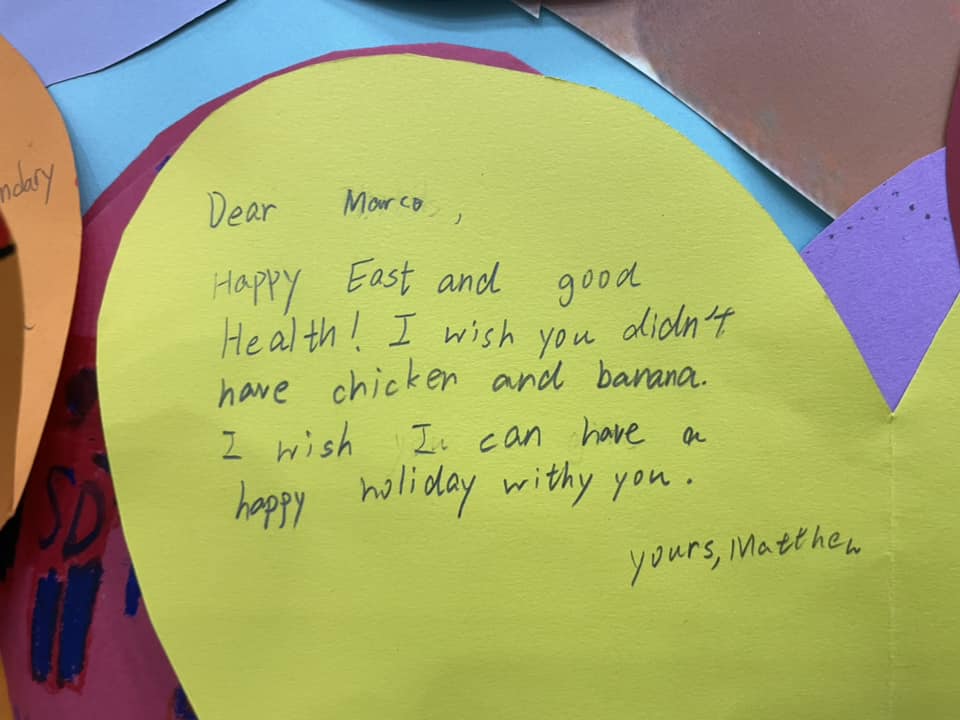 Dear Marco,
Happy East and good
Health! I wish you didn't
have chicken and banana.
I wish I can have a
happy holiday withy you.
yours, Matthew
ndary
SD